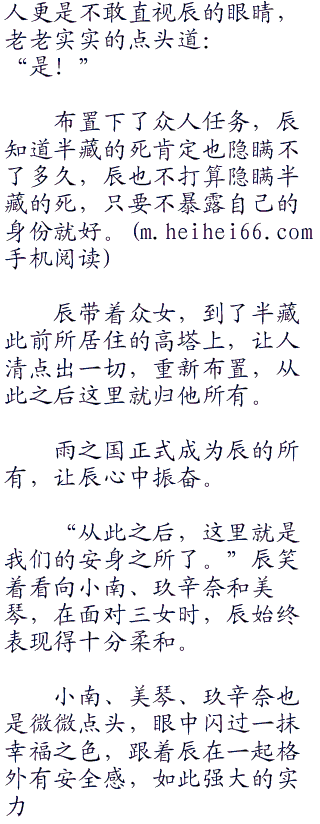 人更是不敢直视辰的眼睛，
老老实实的点头道：
“是！”
布置下了众人任务，辰
知道半藏的死肯定也隐瞒不
了多久，辰也不打算隐瞒半
藏的死，只要不暴露自己的
身份就好。(m.heihei66.com
手机阅读)
辰带着众女，到了半藏
此前所居住的高塔上，让人
清点出一切，重新布置，从
此之后这里就归他所有。
雨之国正式成为辰的所
有，让辰心中振奋。
“从此之后，这里就是
我们的安身之所了。”辰笑
着看向小南、玖辛奈和美
琴，在面对三女时，辰始终
表现得十分柔和。
小南、美琴、玖辛奈也
是微微点头，眼中闪过一抹
幸福之色，跟着辰在一起格
外有安全感，如此强大的实
力